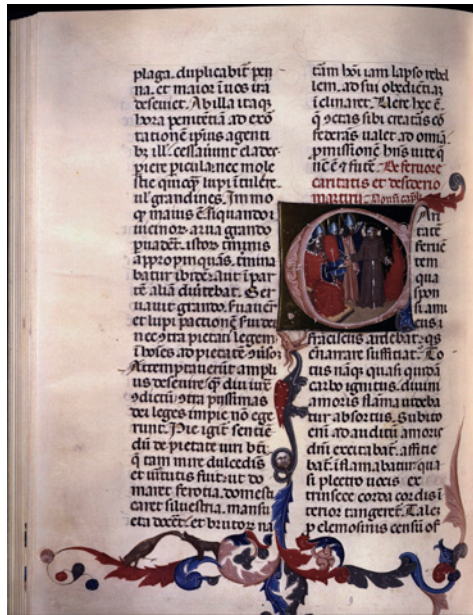 plaga. duplicabit pen
na. et maior i uos ira
deseuiet. Ab illa itaq
hora penitētiā ad exo
tationē ipius agenti
bȝ ill. cessauiunt clades.
piere picula. nec mole
stie quicq lupi itulere
ul grandines. Immo
qȝ maius ē si quando ȝ
uicinoȝ arua grando
puadet. istoȝ tminis
appropinquans. tmina
batur ibidē. aut i par
tē aliā diuertebat. Ser
uauit grando. suauēt
et lupi pactionē serui dei
nec ɔtra pietatis legem
i boīes ad pietatē ɔuso
Attemptauerūt ampli
us deseuire. qȝ diu iuxͭ
ɔdictū ɔtra pijssimas
dei leges impie nō ege
runt. Pie igit sentiē
dū de pietate uiri bͭi.
q tam mire dulcedis
et uirtutis fuit. ut do
maret ferotia. domesti
caret siluestria. mansu
eta docēt. et brutoȝ na
tām hōi iam lapso rebel
lem. ad sui obediētiā
i clinaret. Uere hec ē.
q ɔctas sibi creatās cō
federās ualet ad omia.
pmissionē hns uite q
nc ē ȝ future. De feruore
caritatis et desiderio
martirij.
C Ari
tatē
feruē
tem
qua
spon
si ami
cus
franciscus ardebat. qs
enarrare sufficiat. To
tus nāqȝ quasi quidā
carbo ignitus. diuini
amoris flāma uideba
tur absortus. Subito
enī ad auditū amoris
dni excitabat. afficie
bat. iflamabatur. qua
si plectro uocis ex
trinsece corda cordis i
terior tangeret. Talē
p elemosinis censū of